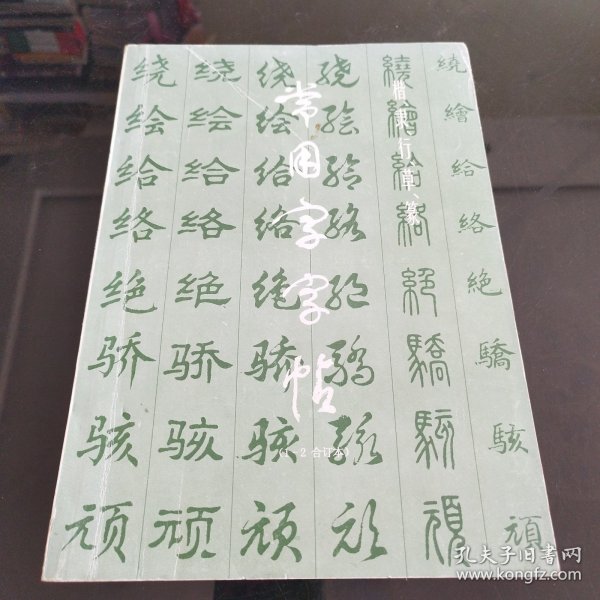 常用字字帖
楷、隶、行、草、篆
(1—2合订本)
绕 绕 绕 绕 繞 繞
绘 绘 绘 绘 繪 繪
给 给 给 给 給 給
络 络 络 络 絡 絡
绝 绝 绝 绝 絕 絶
骄 骄 骄 骄 驕 驕
骇 骇 骇 骇 駭 駭
顽 顽 顽 顽 頑 頑
孔夫子旧书网
www.kongfz.com